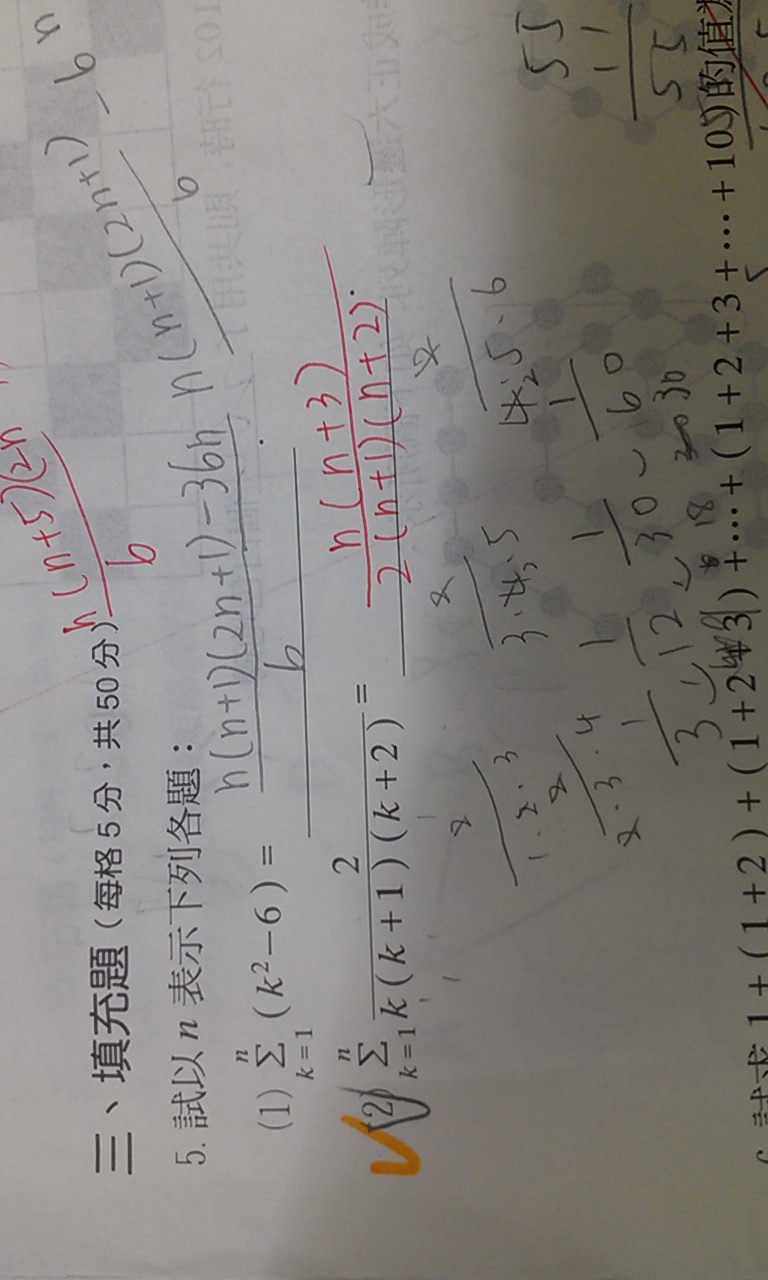 n(n+5)(2n
6
三、填充題(每格5分,共50分)
5. 試以 n 表示下列各題:
(1) ∑_{k=1}^{n} (k²−6) = n(n+1)(2n+1)−36n / 6
n(n+1)(2n+1) / 6 − 6n
(2) ∑_{k=1}^{n} 2 / k(k+1)(k+2) = n(n+3) / 2(n+1)(n+2)
2 / 1·2·3
2 / 3·4·5
2 / 4·5·6
2 / 2·3·4
1/3, 1/12, 1/30, 1/60
18 30
55
11
55
試求 1+(1+2)+(1+2+3)+⋯+(1+2+3+⋯+10)的值